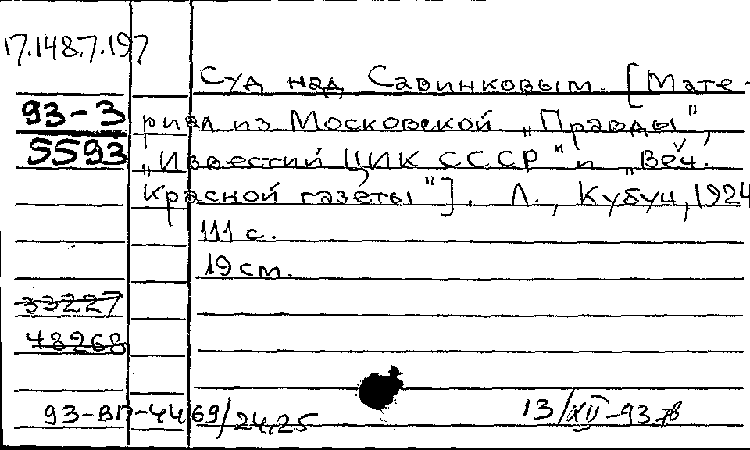 17.148.7.197
Суд над Савинковым. [Мате-
93-3 риал из Московской „Правды",
5593 „Известий ЦИК СССР" и „Веч.
Красной газеты"]. Л., Кубуч, 1924
111 с.
19 см.
33227
48268
93-ВП-4469/24,25 13/XII-93